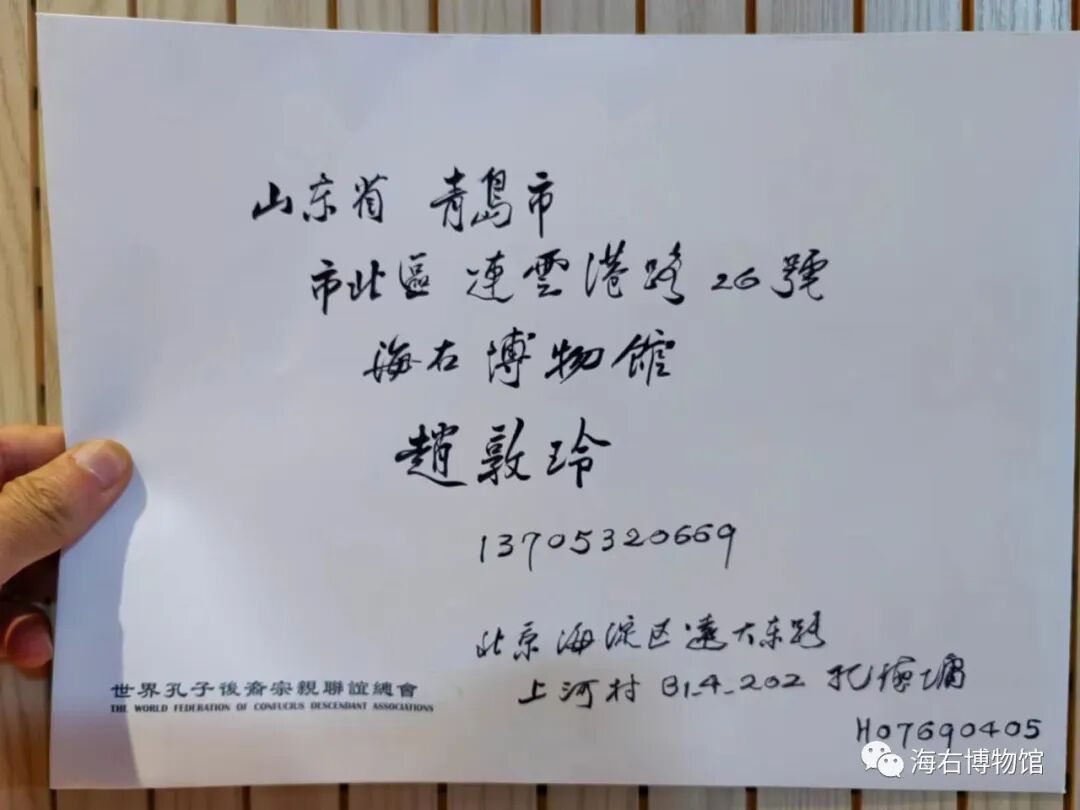 山东省 青島市
市北區 連雲港路 26號
海右博物館
趙敦玲
13705320669
北京海淀区遠大东路
上河村 B1_4_202 孔德墉
H07690405
世界孔子後裔宗親聯誼總會
THE WORLD FEDERATION OF CONFUCIUS DESCENDANT ASSOCIATIONS
海右博物馆